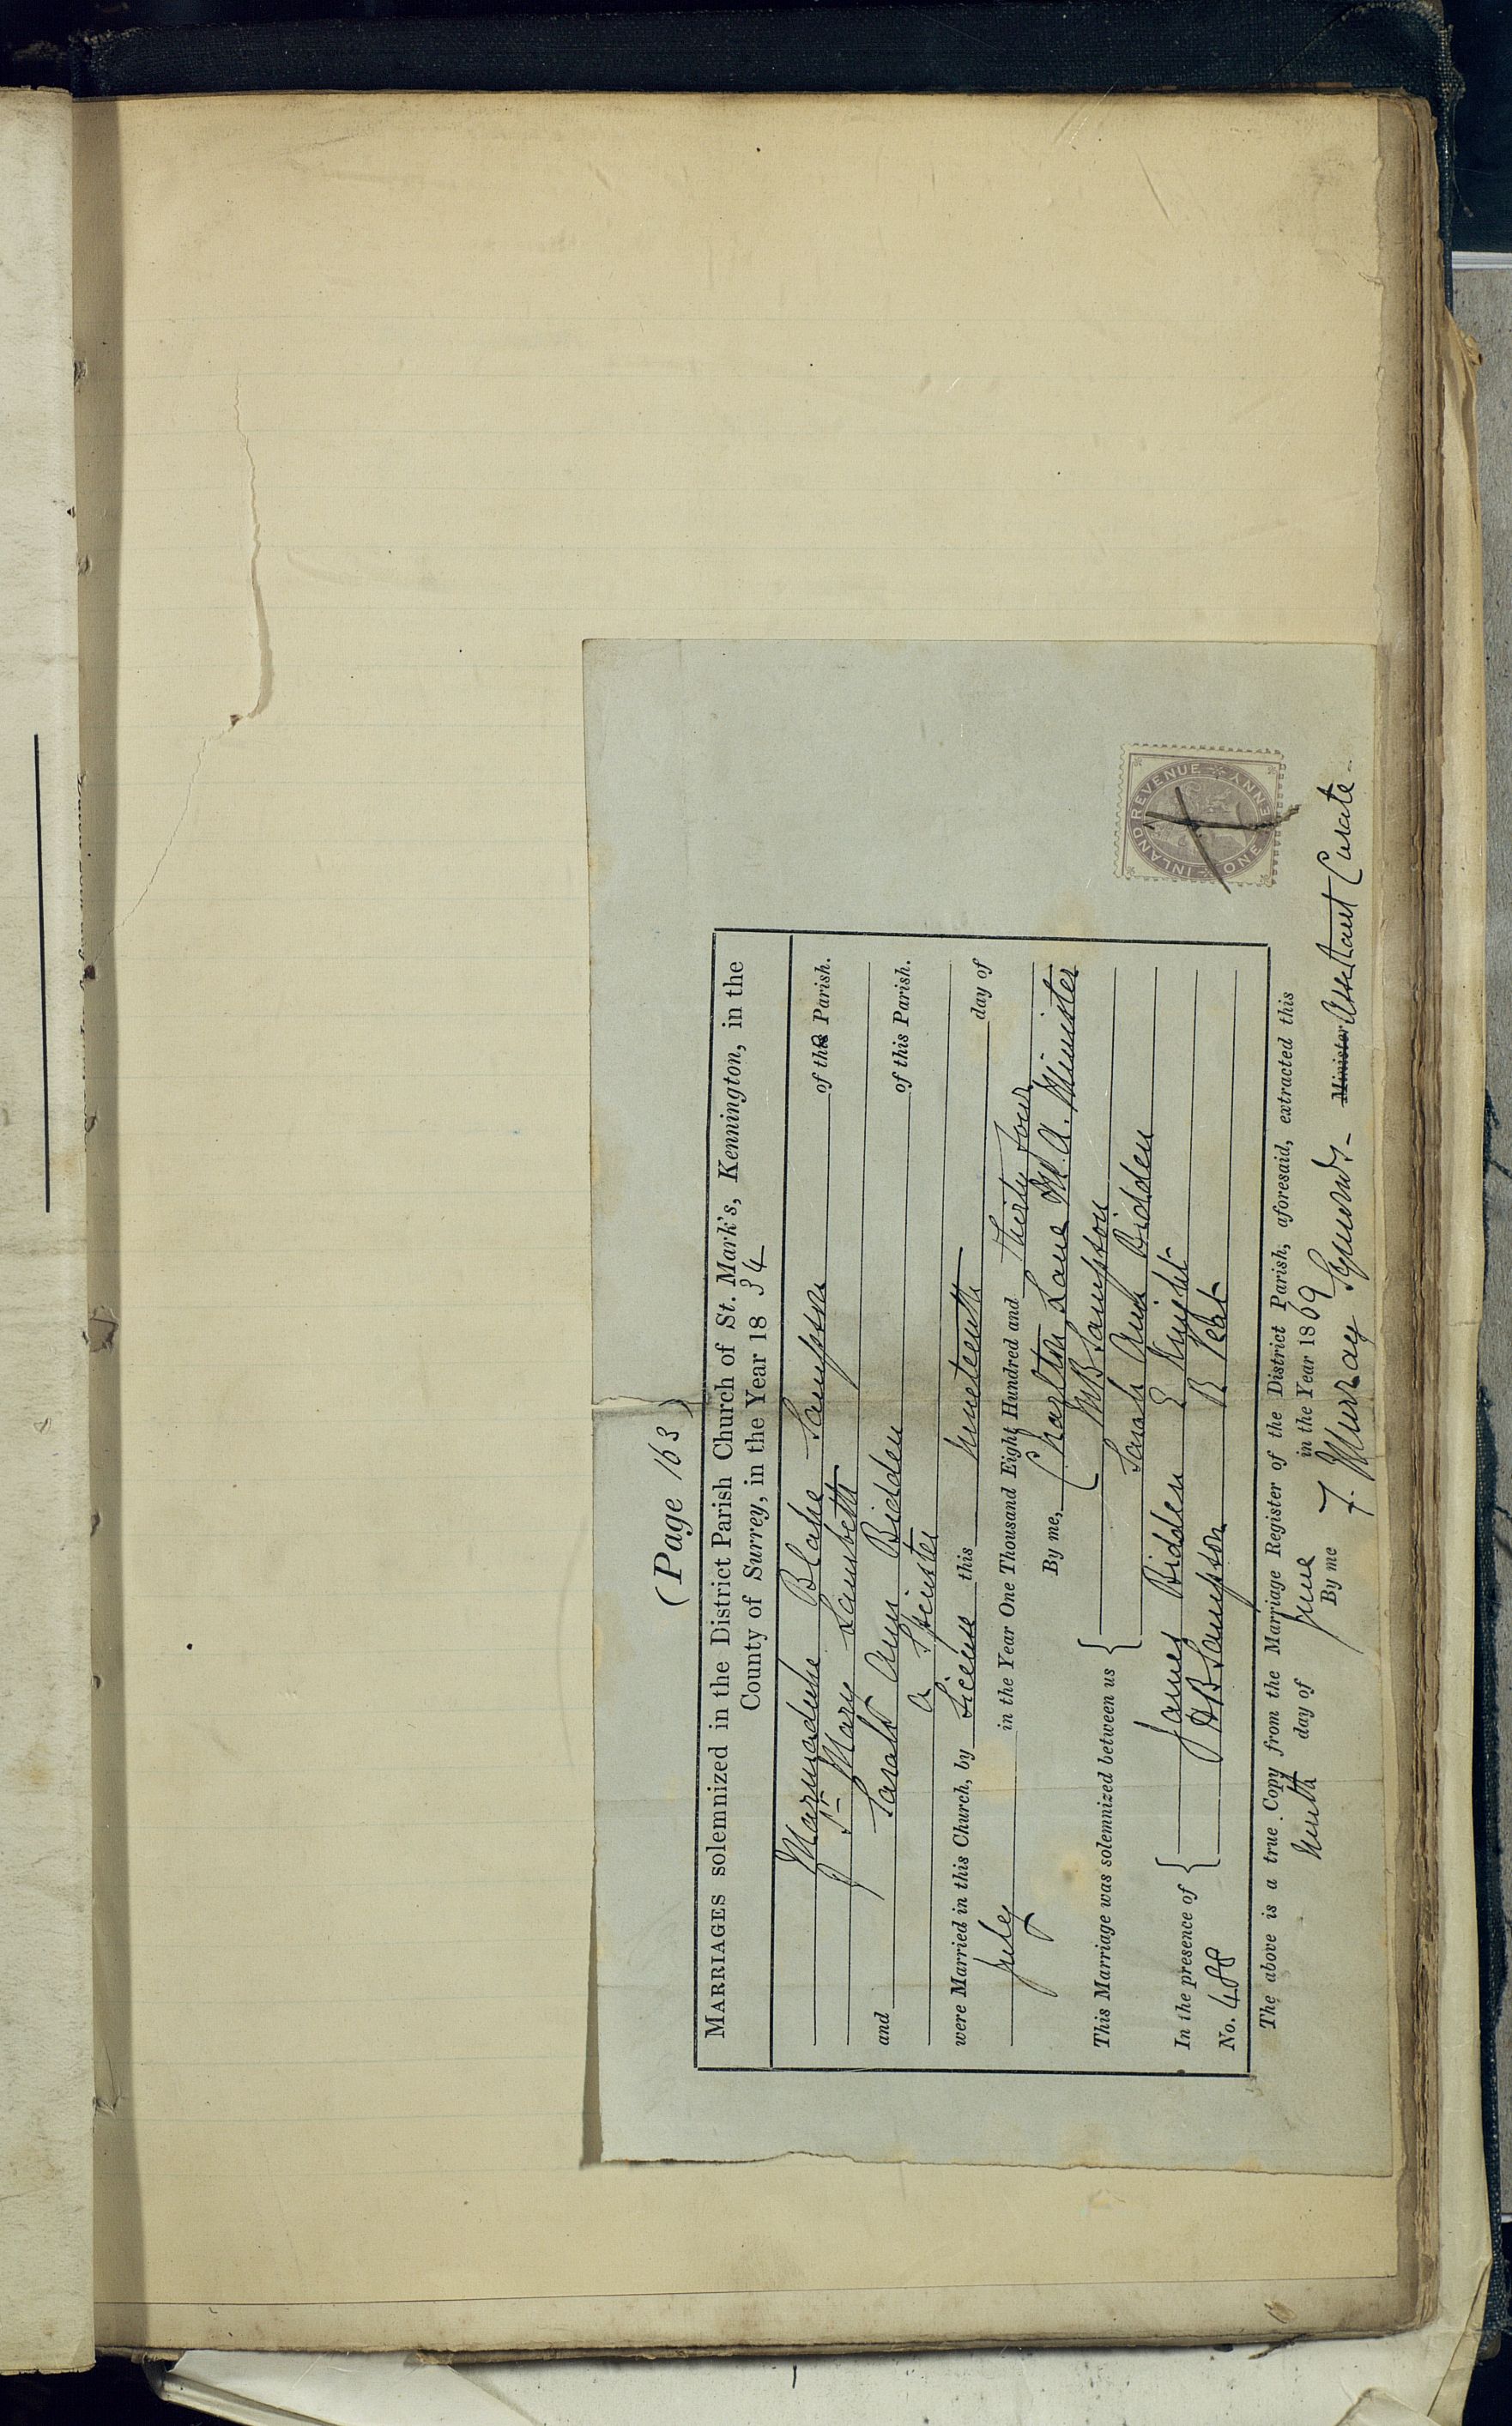 (Page 163)
MARRIAGES solemnized in the District Parish Church of St. Mark's, Kennington, in the
County of Surrey, in the Year 1834
Marmaduke Blake Sampson of the Parish.
St Mary Lambeth
and Sarah Ann Bidden of this Parish.
a Spinster
were Married in this Church, by License this nineteenth day of
July in the Year One Thousand Eight Hundred and Thirty four
By me, Charlton Lane M.A. Minister
This Marriage was solemnized between us { M B Sampson
Sarah Ann Bidden
In the presence of { James Bidden E Knight
H B Sampson B Peat
No. 488
The above is a true Copy from the Marriage Register of the District Parish, aforesaid, extracted this
ninth day of June in the Year 1869
By me F. Murray Minister Assistant Curate
INLAND REVENUE
ONE PENNY